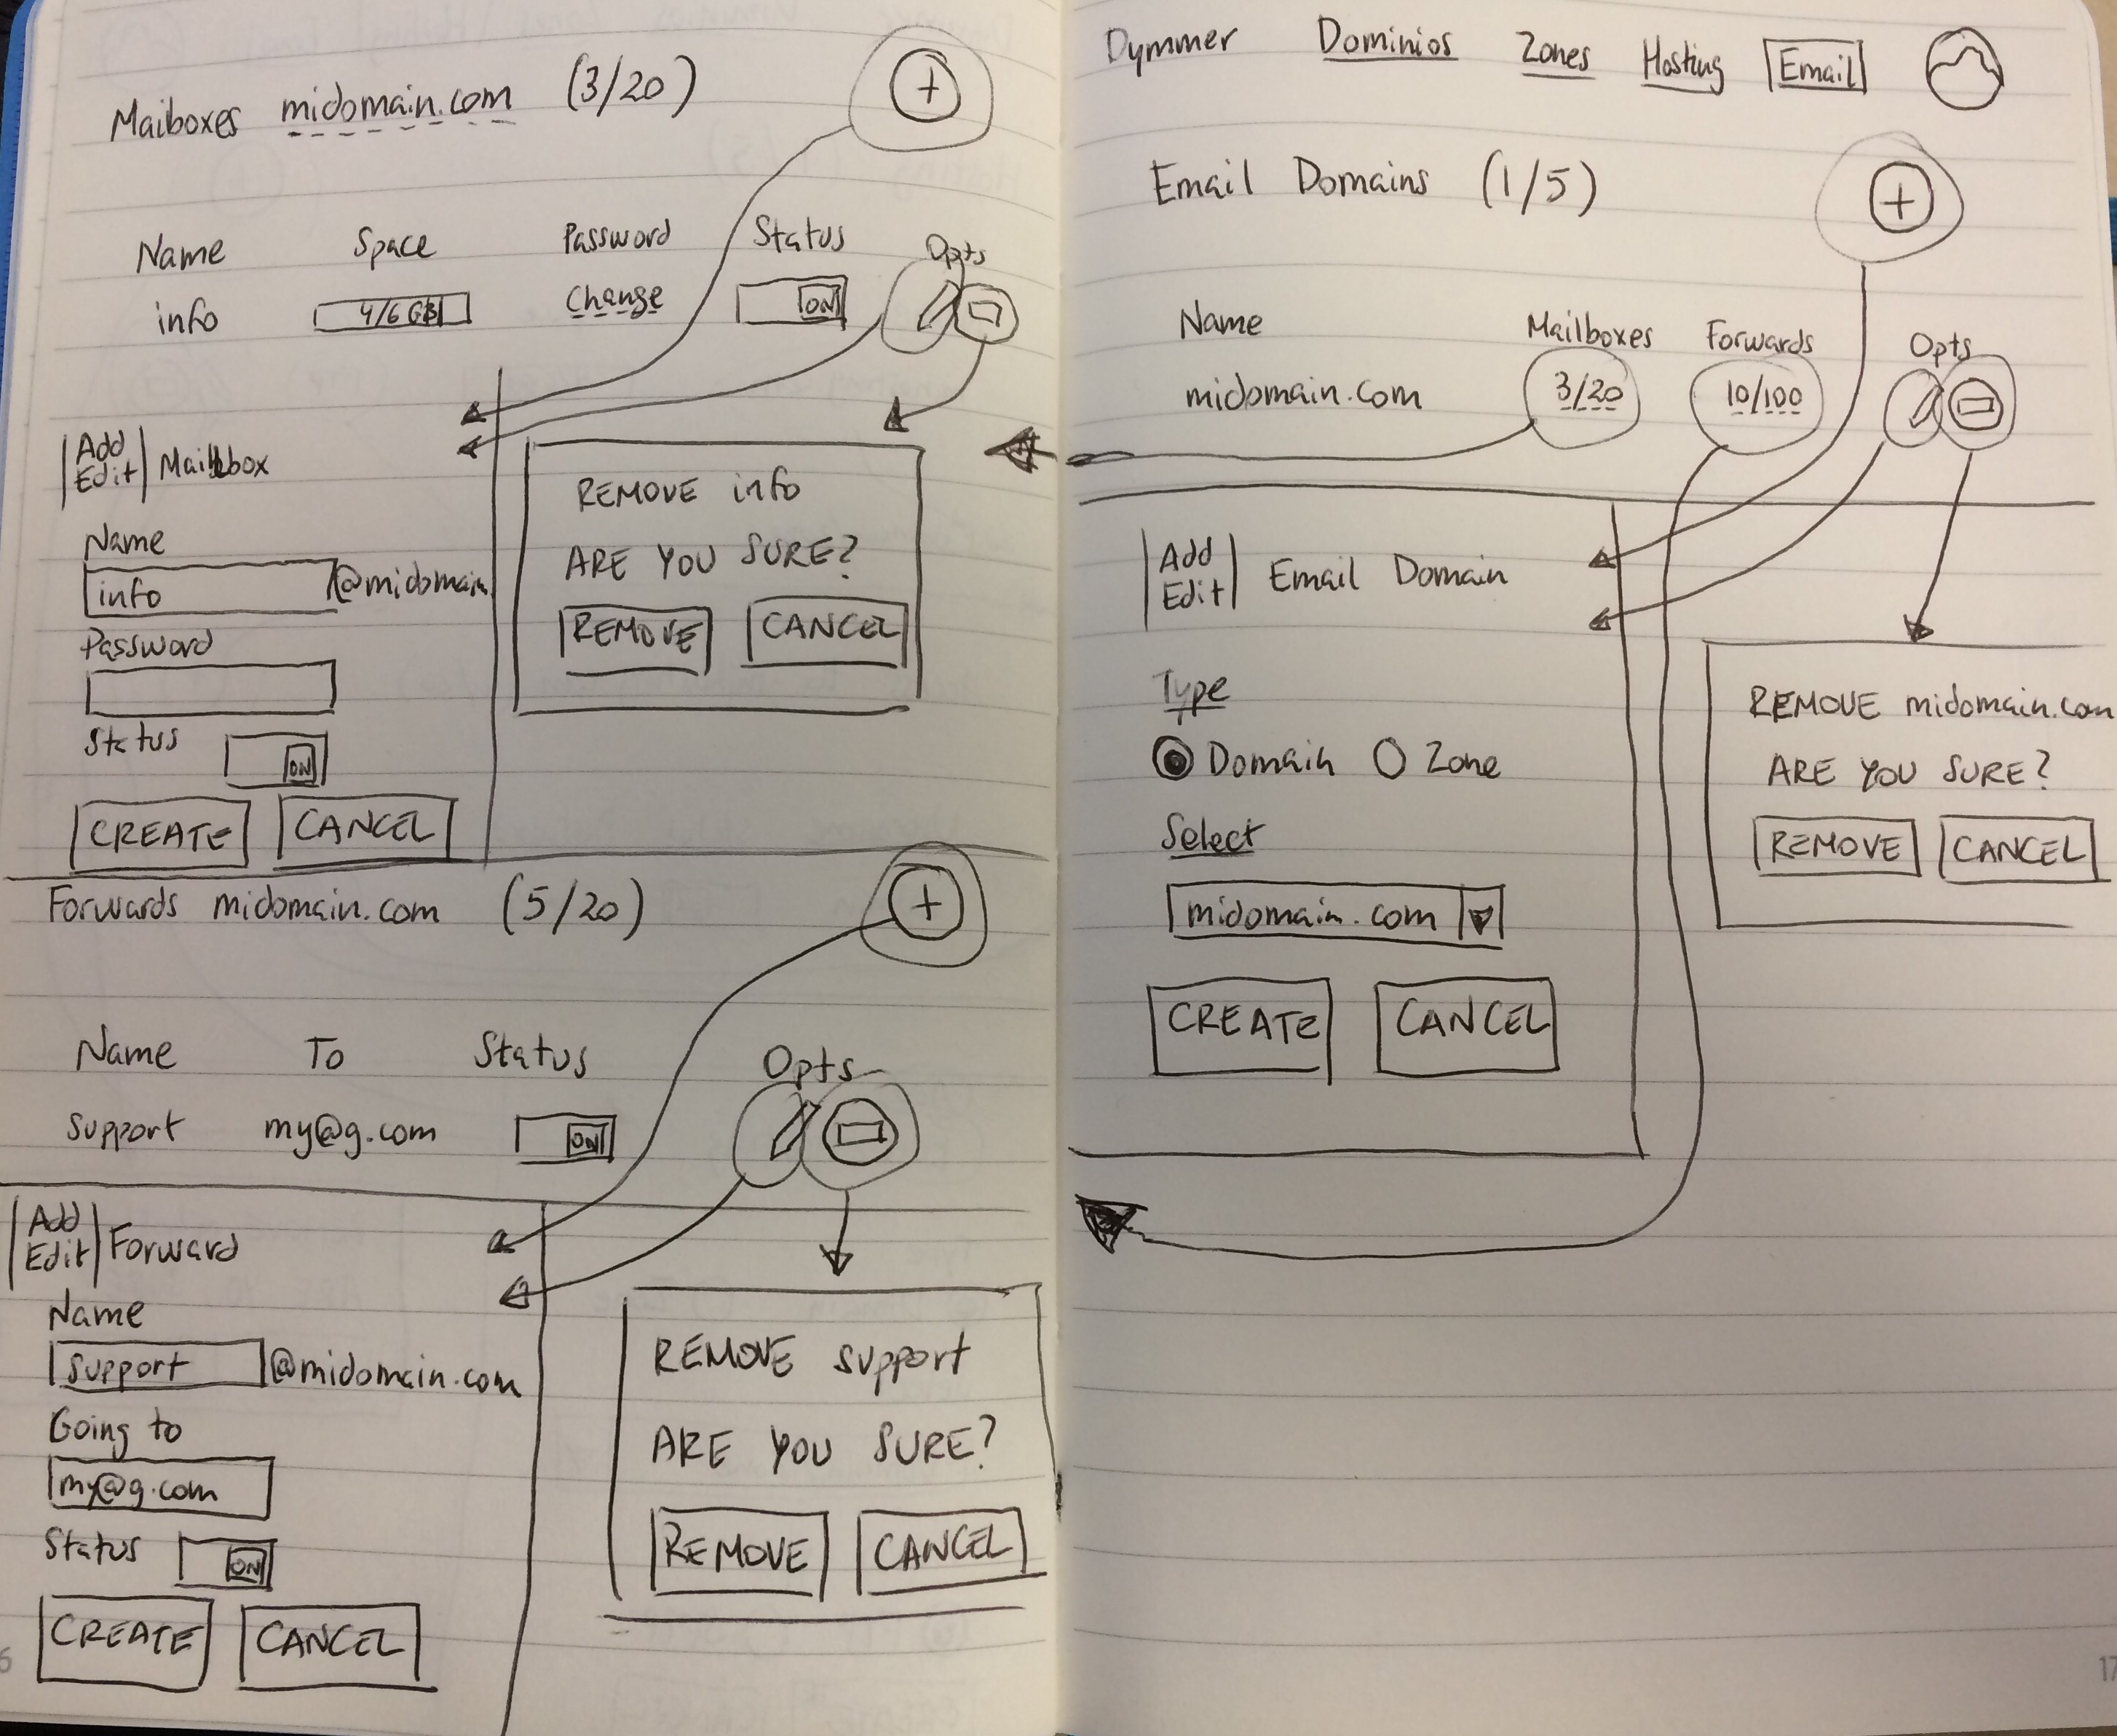 Mailboxes midomain.com (3/20) +
Name Space Password Status Opts
info 4/6 GB Change ON
Add
Edit Mailbox
Name
info @midomain
Password
Status ON
CREATE CANCEL
REMOVE info
ARE YOU SURE?
REMOVE CANCEL
Forwards midomain.com (5/20) +
Name To Status Opts
support my@g.com ON
Add
Edit Forward
Name
support @midomain.com
Going to
my@g.com
Status ON
CREATE CANCEL
REMOVE support
ARE YOU SURE?
REMOVE CANCEL
6
Dymmer Dominios Zones Hosting Email
Email Domains (1/5) +
Name Mailboxes Forwards Opts
midomain.com 3/20 10/100
Add
Edit Email Domain
Type
Domain Zone
Select
midomain.com
CREATE CANCEL
REMOVE midomain.com
ARE YOU SURE?
REMOVE CANCEL
17